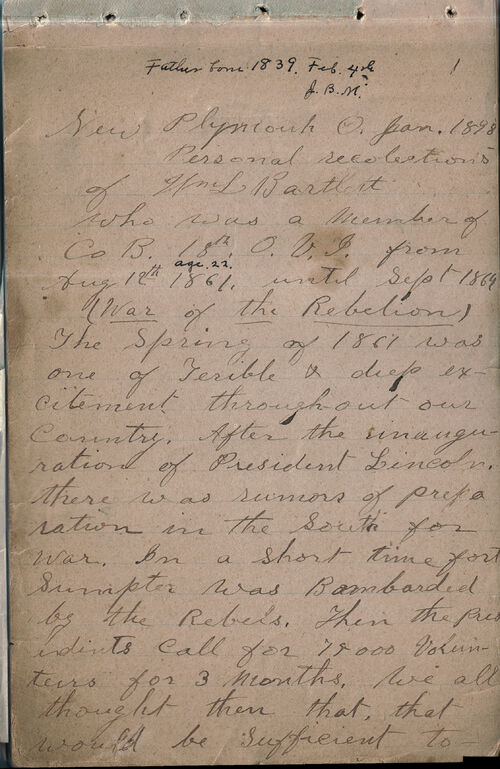 Father born 1839. Feb. 4th
1
J. B. M.
New Plymouth O. Jan. 1898
Personal recolections
of Wm L Bartlett
who was a member of
Co B. 18th, O. V. I. from
age. 22.
Aug 12th 1861. until Sept 1864
(War of the Rebelion)
The Spring of 1861 was
one of Terible & deep ex-
citement throughout our
Country. After the inaugu-
ration of President Lincoln.
there was rumors of prepa
ration in the South for
war. In a short time fort
Sumpter was Bombarded
by the Rebels. Then the Pres
idints Call for 75000 Volun-
teers for 3 Months. We all
thought then that, that
would be Sufficient to-